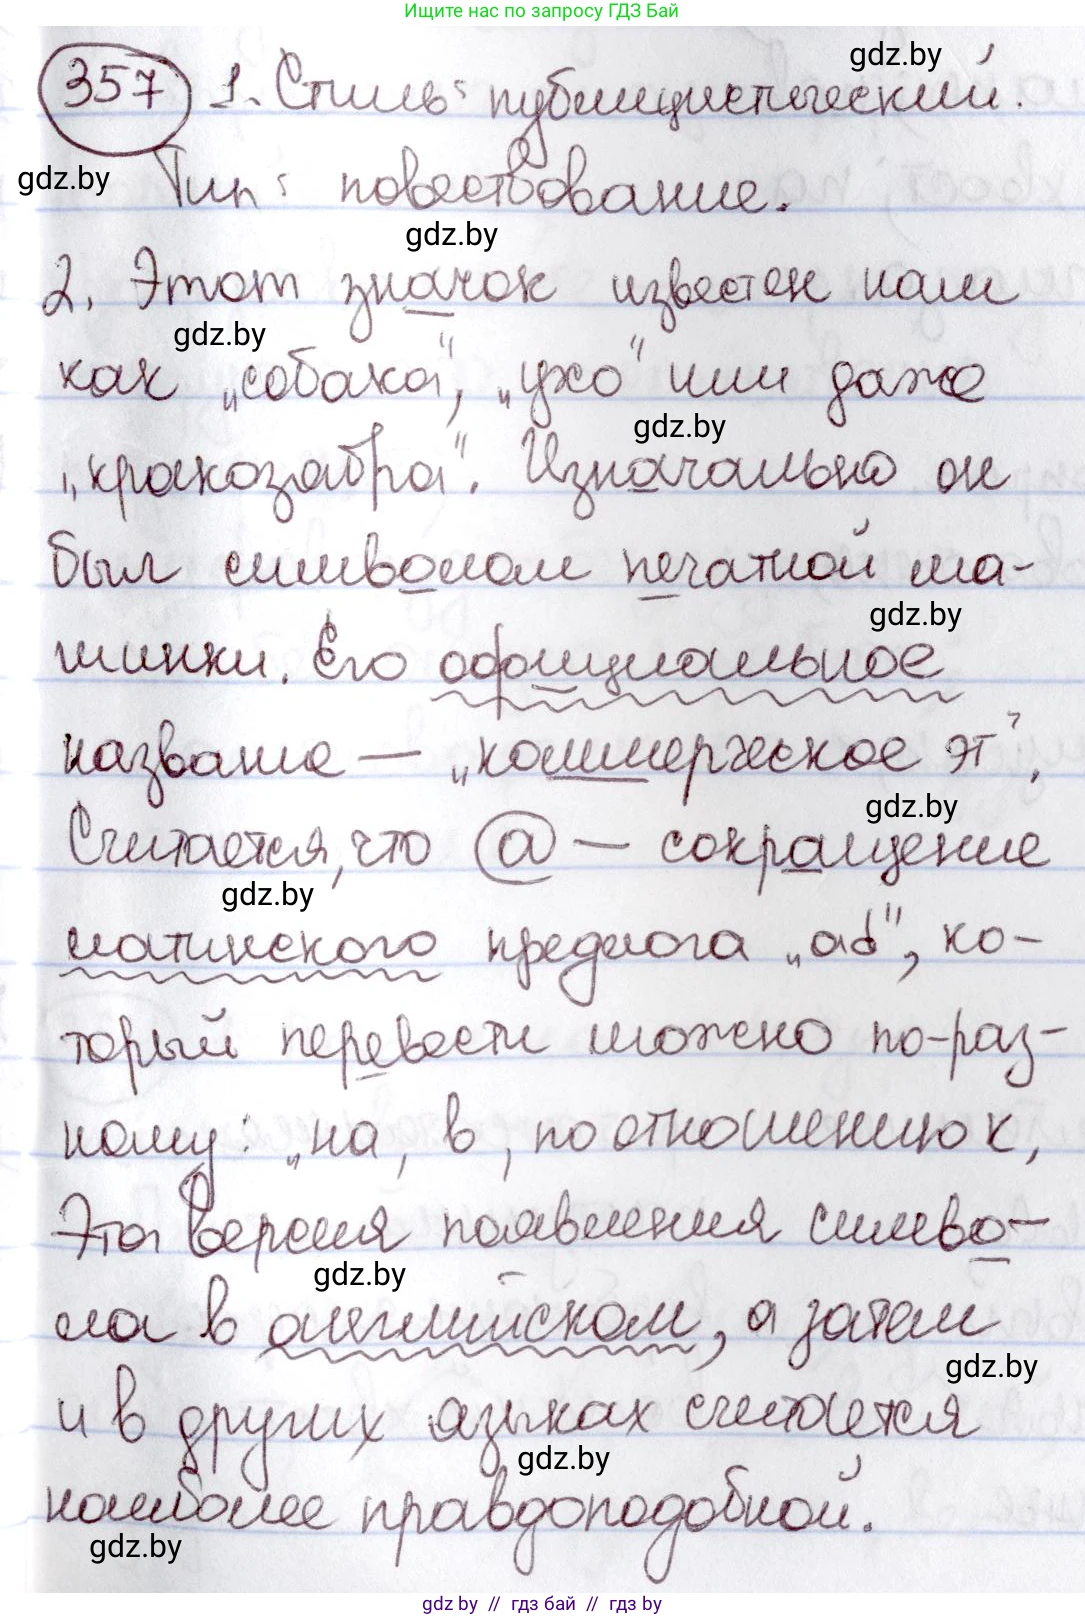 Ищите нас по запросу ГДЗ Бай
gdz.by
357 1. Стиль: публицистический.
gdz.by
Тип: повествование.
gdz.by
2. Этот значок известен нам
gdz.by
как „собака", „ухо" или даже
gdz.by
„кракозабра". Изначально он
был символом печатной ма-
gdz.by
шинки. Его официальное
название — „коммерческое эт".
gdz.by
Считается, что @ — сокращение
gdz.by
латинского предлога „ad", ко-
торый перевести можно по-раз-
ному: „на, в, по отношению к,
Эта версия появления симво-
gdz.by
ла в английском, а затем
gdz.by
и в других языках считается
gdz.by
наиболее правдоподобной.
gdz.by
gdz.by // гдз бай // гдз by